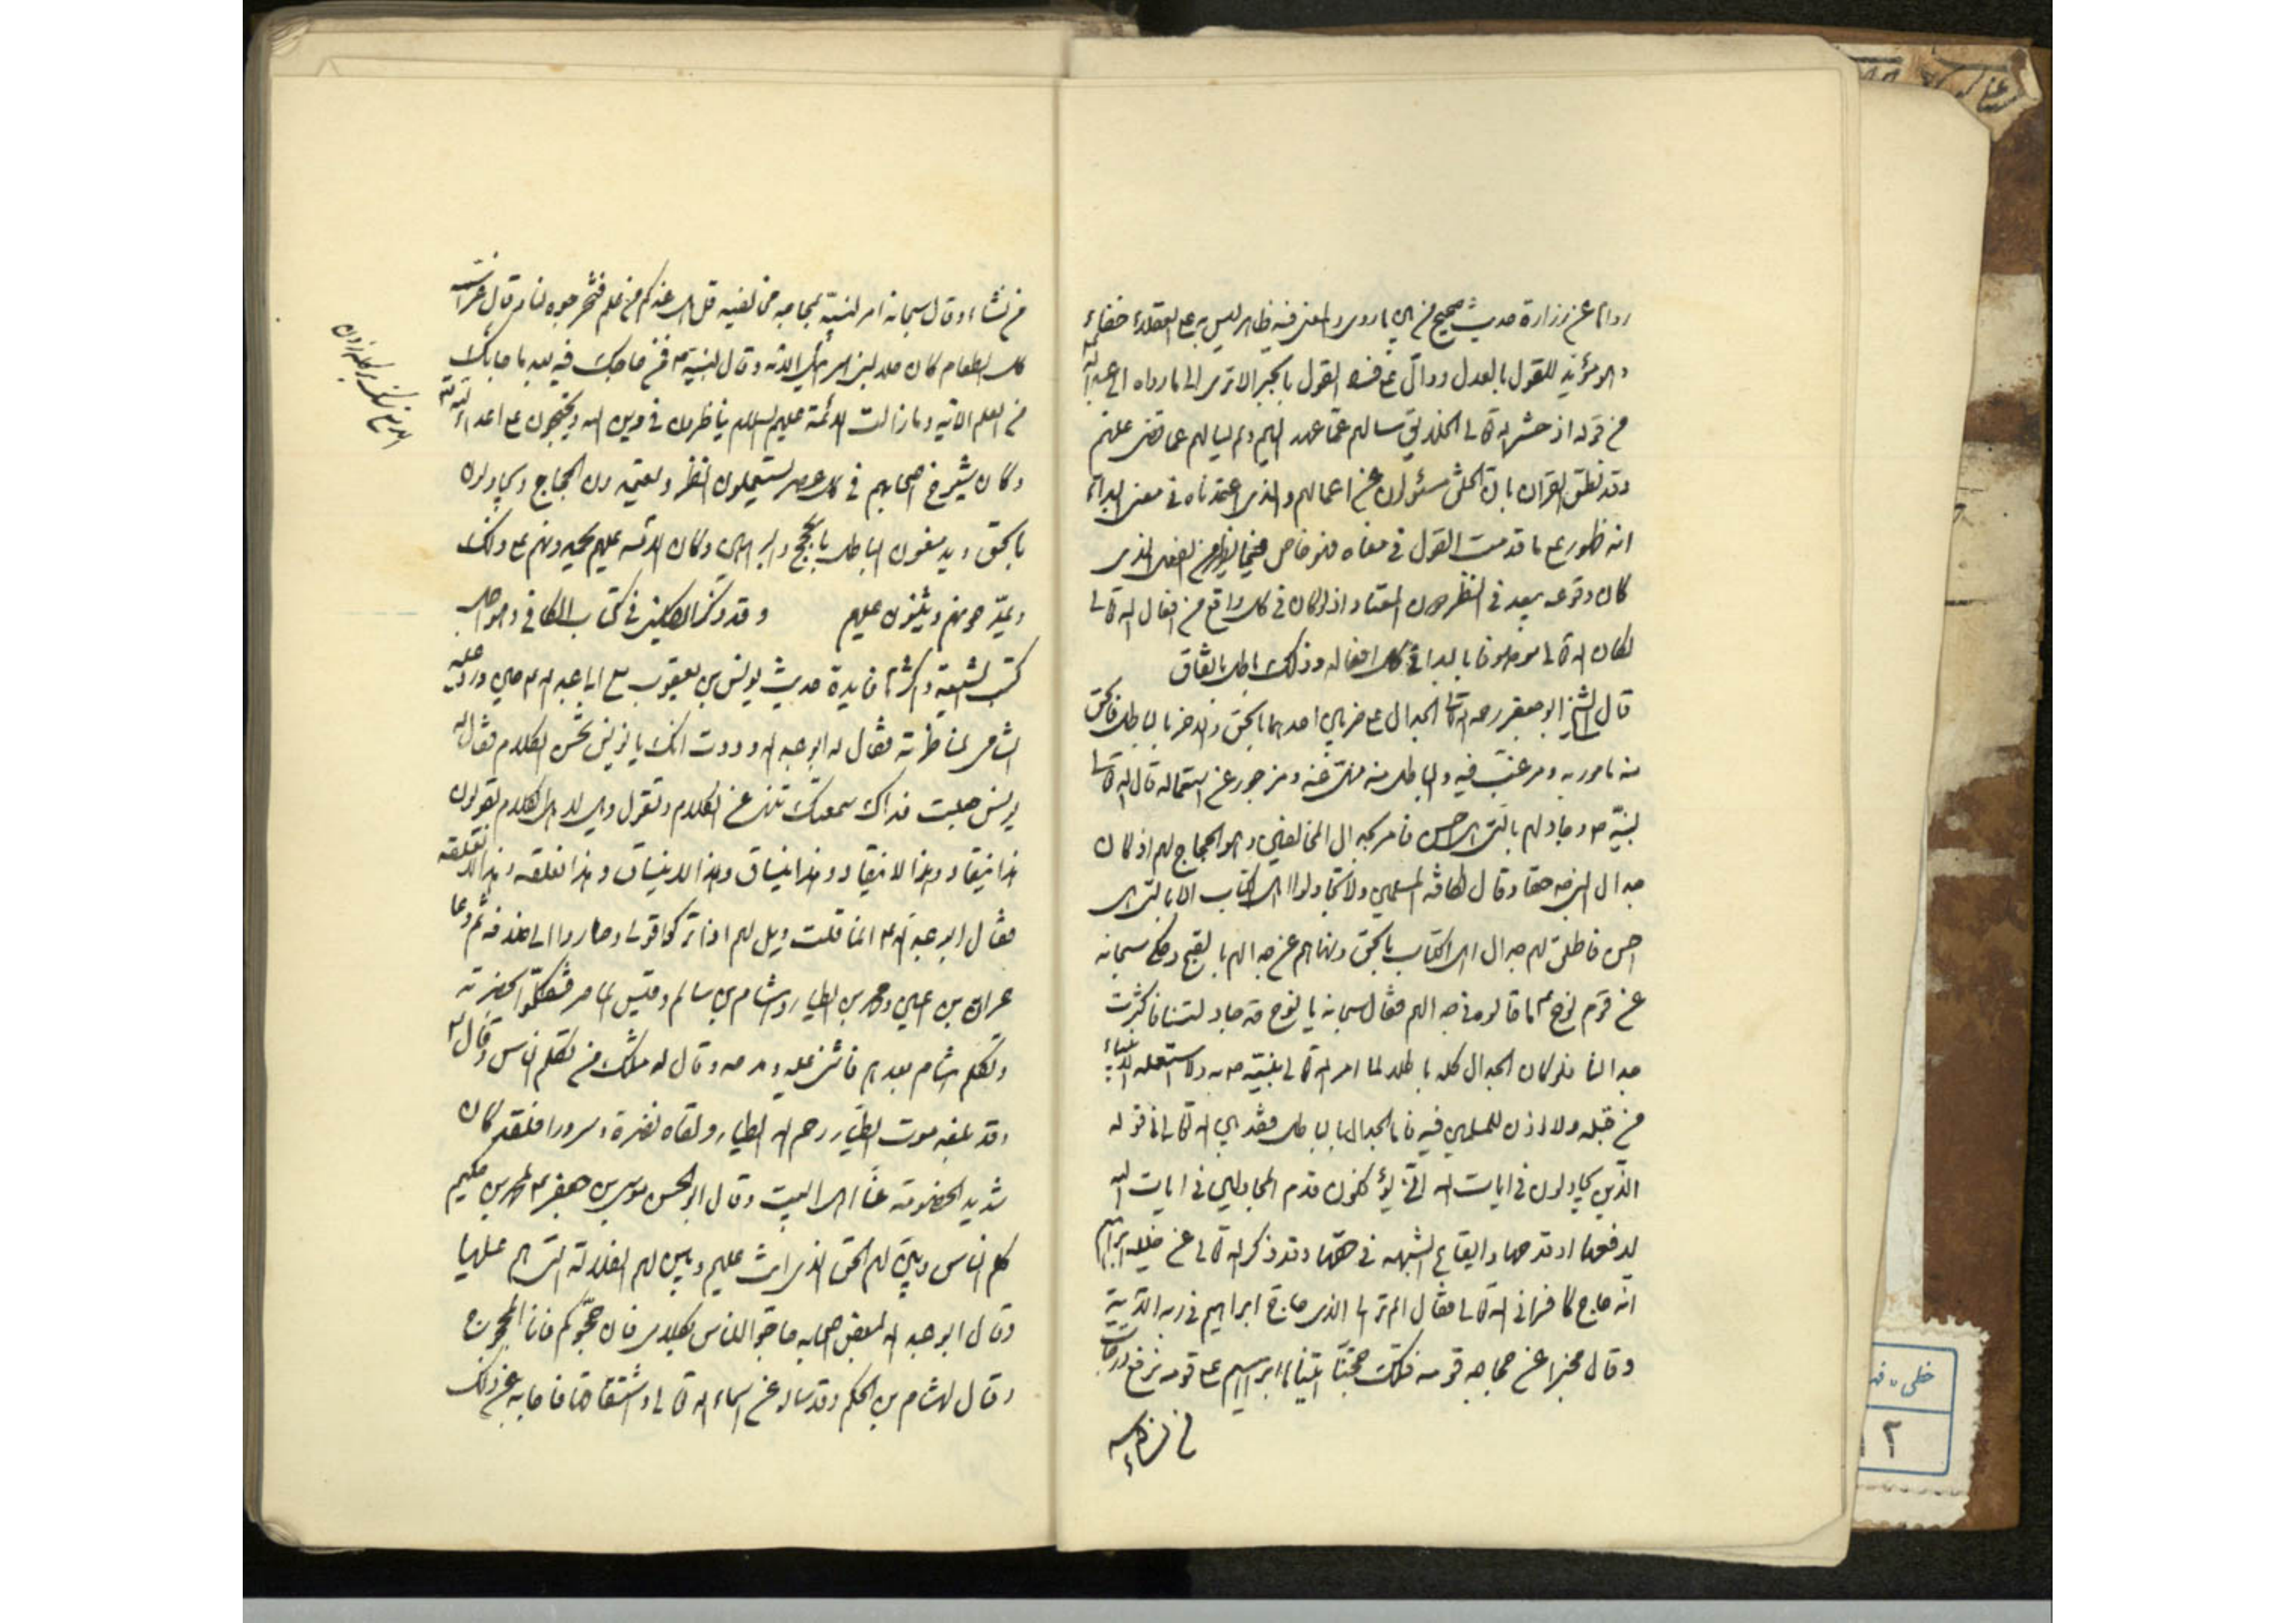 رواها عن زرارة حديث صحيح من بين ما روى والمعنى فيه ظاهر ليس به على العقلاء خفاء
وهو مؤيد للقول بالعدل ودال على فساد القول بالجبر الا ترى الى ما رواه ابي عبد الله
من قوله اذ حشر الله تعالى الخلايق سالهم عما عهد اليهم ولم يسالهم عما قضى عليهم
وقد نطق القران بان الخلق مسئولون عن اعمالهم والذى اعتمدناه في معنى البدا
انه ظهور على ما قدمت القول في معناه فهو خاص فيما يظهر من الفعل الذى
كان وقوعه يبعد في النظر دون المعتاد اذ لو كان في كل واقع من افعال الله تعالى
لكان الله تعالى موصوفا بالبدا في كل افعاله وذلك باطل باتفاق
قال الشيخ ابو جعفر رحمه الله الجدال على ضربين احدهما بالحق والاخر بالباطل فالحق
منه مامور به ومرغب فيه والباطل منه منهى عنه ومزجور عن استعماله قال الله تعالى
لنبيه ص وجادلهم بالتى هى احسن فامر بجدال المخالفين وهو الحجاج لهم اذ كان
جدال النبي ص حقا وقال لكافة المسلمين ولا تجادلوا اهل الكتاب الا بالتى هى
احسن فاطلق لهم جدال اهل الكتاب بالحق ونهاهم عن جدالهم بالقبيح وحكى سبحانه
عن قوم نوح ع ما قالوه في جدالهم فقال سبحانه يا نوح قد جادلتنا فاكثرت
جدالنا فلو كان الجدال كله باطلا لما امر الله تعالى نبيه ص به ولا استعمله الانبياء
من قبله ولا اذن للمسلمين فيه فاما الجدال بالباطل فقد بين الله تعالى في قوله
الذين يجادلون في ايات الله انى يؤفكون فذم المجادلين في ايات الله
لدفعها او قدحها وايقاع الشبهه في حقها وقد ذكر الله تعالى عن خليله ابراهيم
انه حاج كافرا في الله تعالى فقال الم تر الى الذى حاج ابراهيم في ربه الاية
وقال مخبرا عن حجاجه قومه وتلك حجتنا اتيناها ابراهيم على قومه نرفع درجات
من نشاء
من نشاء وقال سبحانه امرا لنبيه بمحاجة مخالفيه قل هل عندكم من علم فتخرجوه لنا وقال عز اسمه
كل الطعام كان حلا لبنى اسرائيل الاية وقال لنبيه ص فمن حاجك فيه من بعد ما جاءك
من العلم الاية وما زالت الائمة عليهم السلام يناظرون في دين الله ويحتجون على اعداء الله
وكان شيوخ اصحابهم في كل عصر يستعملون النظر ويعتمدون الحجاج ويجادلون
بالحق ويدمغون الباطل بالحجج والبراهين وكان الائمه عليهم يحمدونهم على ذلك
ويمدحونهم ويثنون عليهم وقد ذكر الكلينى في كتاب الكافى وهو اجل
كتب الشيعة واكثرها فايدة حديث يونس بن يعقوب مع ابى عبد الله ع حين ورد عليه
الشامى لمناظرته فقال له ابو عبد الله وددت انك يا يونس تحسن الكلام فقال له
يونس جعلت فداك سمعتك تنهى عن الكلام وتقول ويل لاهل الكلام يقولون
هذا ينقاد وهذا لا ينقاد وهذا ينساق وهذا لا ينساق وهذا نعقله وهذا لا نعقله
فقال ابو عبد الله ع انما قلت ويل لهم اذا تركوا قولى وصاروا الى خلافه ثم دعا
حمران بن اعين ومحمد بن الطيار وهشام بن سالم وقيس الماصر فتكلموا بحضرته
وتكلم هشام بعدهم فاثنى عليه ومدحه وقال له مثلك من يكلم الناس وقال ع
وقد بلغه موت الطيار رحم الله الطيار ولقاه نضرة وسرورا فلقد كان
شديد الخصومة عنا اهل البيت وقال ابو الحسن موسى بن جعفر ع لمحمد بن حكيم
كلم الناس وبين لهم الحق الذى انت عليه وبين لهم الضلالة التى هم عليها
وقال ابو عبد الله لبعض اصحابه حاجوا الناس بكلامى فان حجوكم فانا المحجوج
وقال لهشام بن الحكم وقد ساله عن اسماء الله تعالى واشتقاقها فاجابه عن ذلك